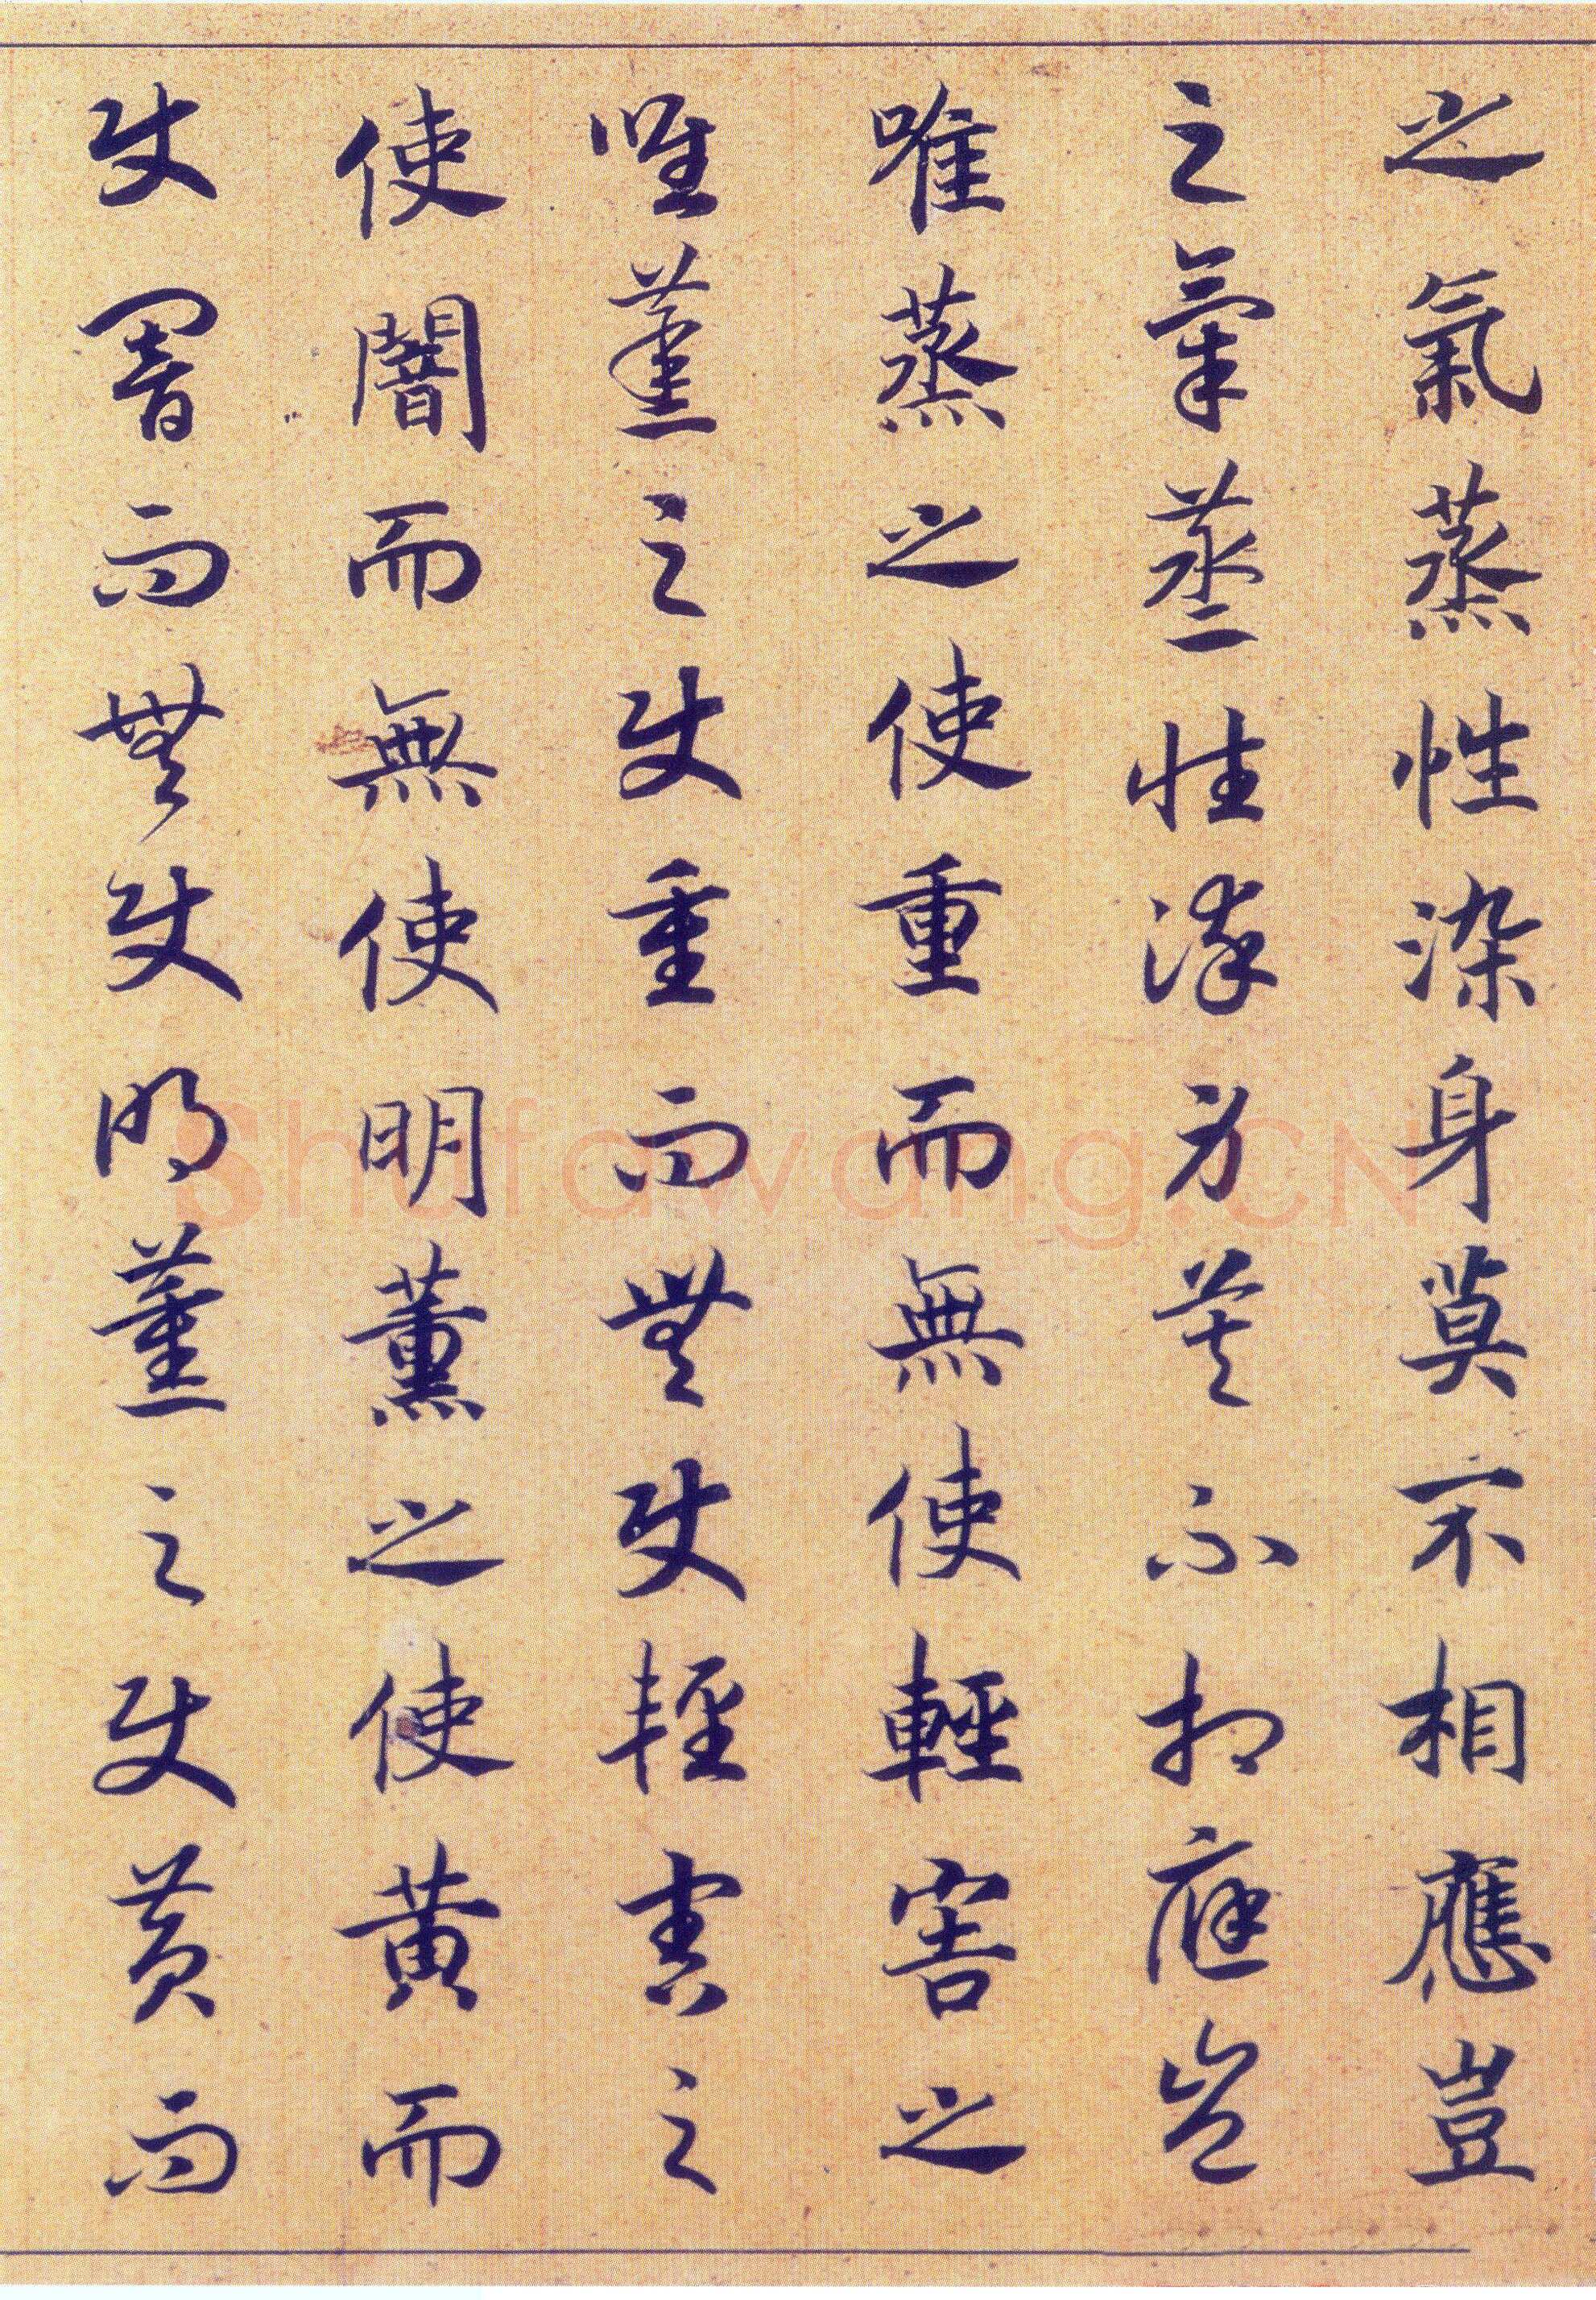 之氣蒸性染身莫不相應豈
之氣蒸性染身莫不相應豈
唯蒸之使重而無使輕害之
唯蒸之使重而無使輕害之
使闇而無使明薰之使黄而
使闇而無使明薰之使黄而
Shufawang.CN